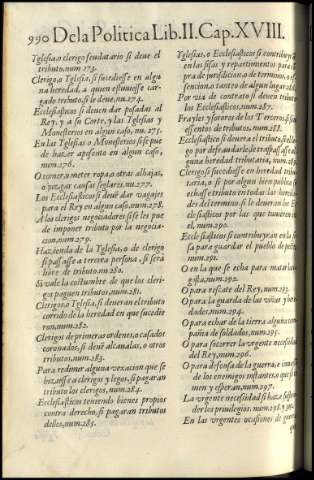 990 De la Politica Lib. II. Cap. XVIII.
Yglesia, o clerigo feudatario si deue el
tributo, num. 273.
Clerigo, a Yglesia, si sucediesse en algu
na heredad, a quien estuuiesse car-
gado tributo, si le deue, nu. 274.
Eclesiasticos si deuen dar posadas al
Rey, y a su Corte, y las Yglesias y
Monesterios en algun caso, nu. 275.
En las Yglesias o Monesterios si se pue
de hazer aposento en algun caso,
num. 276.
O comer, o meter ropa, o otras alhajas,
o juzgar causas seglares. nu. 277.
Los Ecclesiasticos si deuen dar vagajes
para el Rey en algun caso, num. 278.
A los clerigos negociadores si se les pue
de imponer tributo por la negocia-
cion, num. 279.
Hazienda de la Yglesia, o de clerigo
si passasse a tercera persona, si será
libre de tributo. nu. 280.
Si vale la costumbre de que los cleri-
gos paguen tributos, num. 281.
Clerigo, o Yglesia, si deueran el tributo
corrido de la heredad en que sucedie
ron, num. 282.
Clerigos de primeras ordenes, o casados
coronados, si deuē alcaualas, o otros
tributos, num. 283.
Para redimir alguna vexacion que se
hiziesse a clerigos y legos, si pagaran
tributo los clerigos, num. 284.
Ecclesiasticos teniendo bienes propios
contra derecho, si pagaran tributos
dellos, num. 285.
Yglesias, o Ecclesiasticos si contribuyē
en las sisas y repartimientos para
pra de jurisdicion, o de terminos, o es
sencion, o tanteo de algun lugar
Por via de contrato si deuen
los Ecclesiasticos, num. 287.
Frayles y forores de los Terceros, si
essentos de tributos, num. 288.
Ecclesiastico si deuera el tributo, si
go por defraudarle, le traspassasse
guna heredad tributaria,
Clerigo si sucediesse en heredad
taria, o si por algun bien publico
echasse tributo en todas las hereda-
des del termino si le deuran los
clesiasticos por las que tuuieren
el, num. 290.
Ecclesiasticos si contribuyran en la
sa para guardar el pueblo de peste
num. 291.
O en la que se echa para matar lan
gosta, num. 292.
O para rescate del Rey, num. 293.
O para la guarda de las viñas y
dades, num. 294.
O para echar de tierra alguna com
pañia de soldados, num. 295.
O para socorrer la vrgente necessidad
del Rey, num. 296.
O para defensa de la guerra, e
de los enemigos instantes, o que se
men y esperan, num. 297.
La vrgente necessidad si haze
der los priuilegios. num. 298. y
En las vrgentes ocasiones de guerra